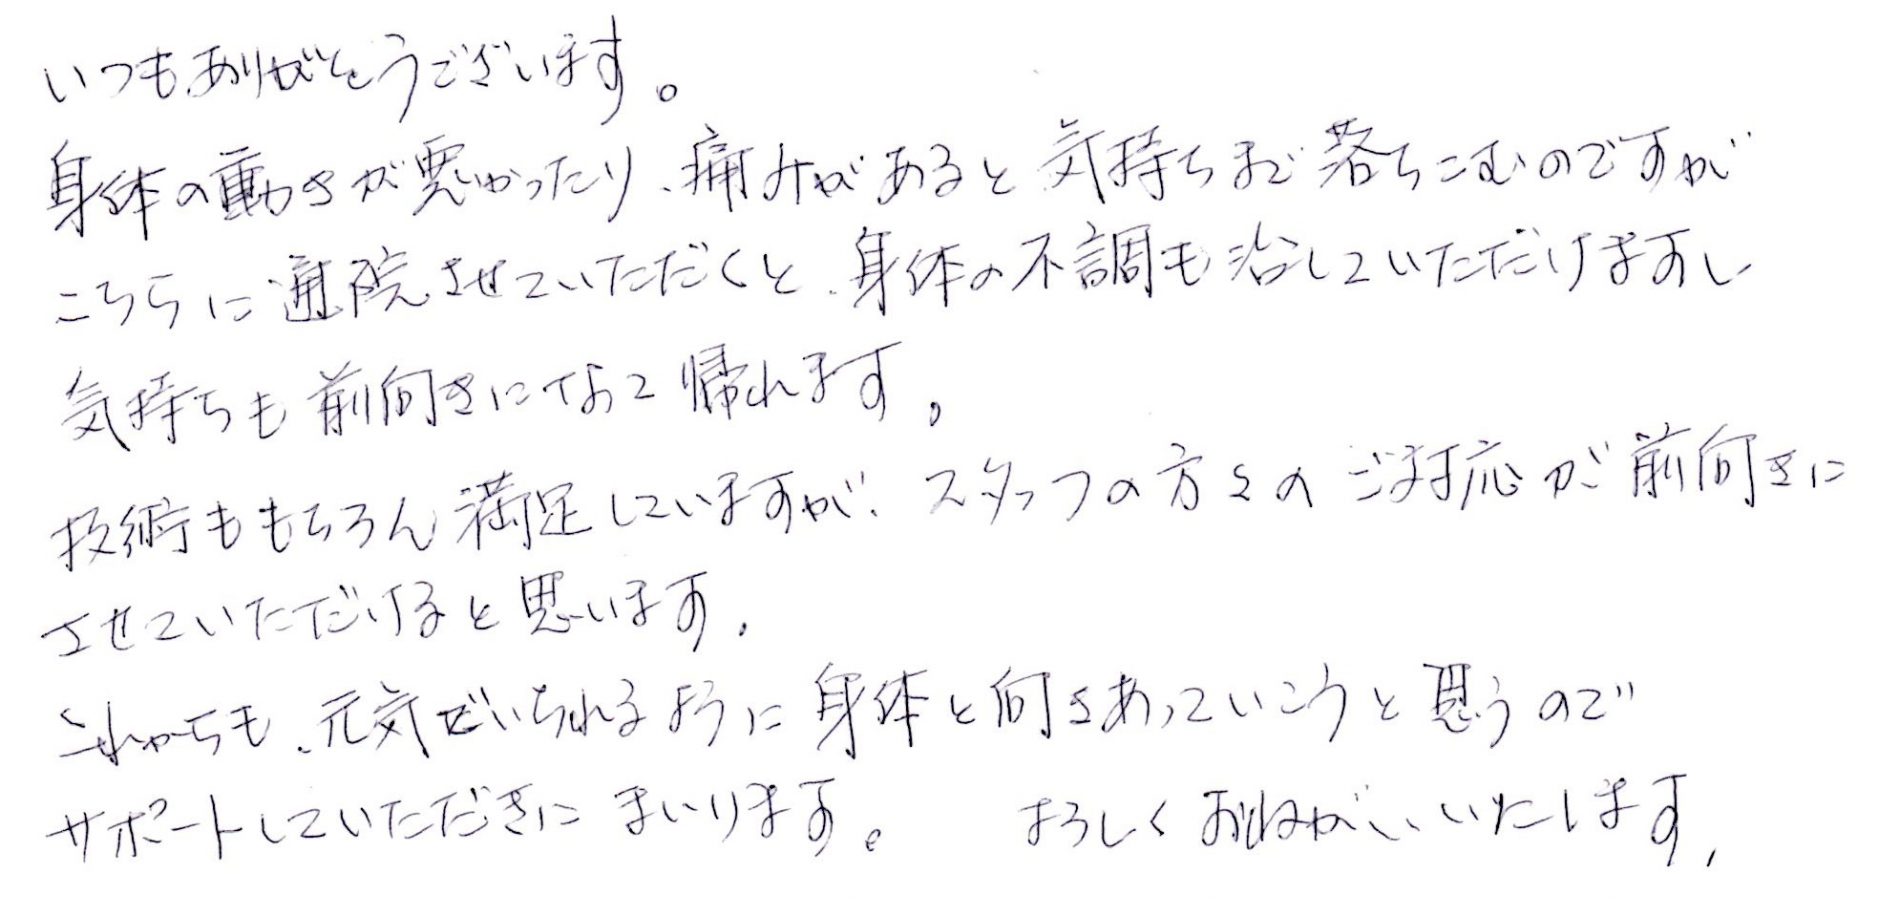 いつもありがとうございます。
身体の動きが悪かったり、痛みがあると気持ちまで落ちこむのですが
こちらに通院させていただくと、身体の不調も治していただけますし
気持ちも前向きになって帰れます。
技術ももちろん満足していますが、スタッフの方々のご対応が前向きに
させていただけると思います。
これからも、元気でいられるように身体と向きあっていこうと思うので
サポートしていただきにまいります。 よろしくおねがいいたします。